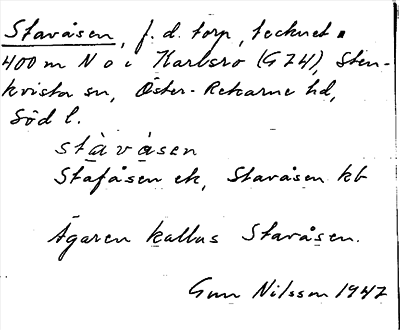 Stavåsen, f.d. torp, tecknet ▪
400 m N o i Karlsro (G74), Sten-
kvista sn, Öster-Rekarne hd,
Söd l.
stàvåsen
Stafåsen ek, Stavåsen kb
Ägaren kallas Stavåsen.
Gun Nilsson 1947